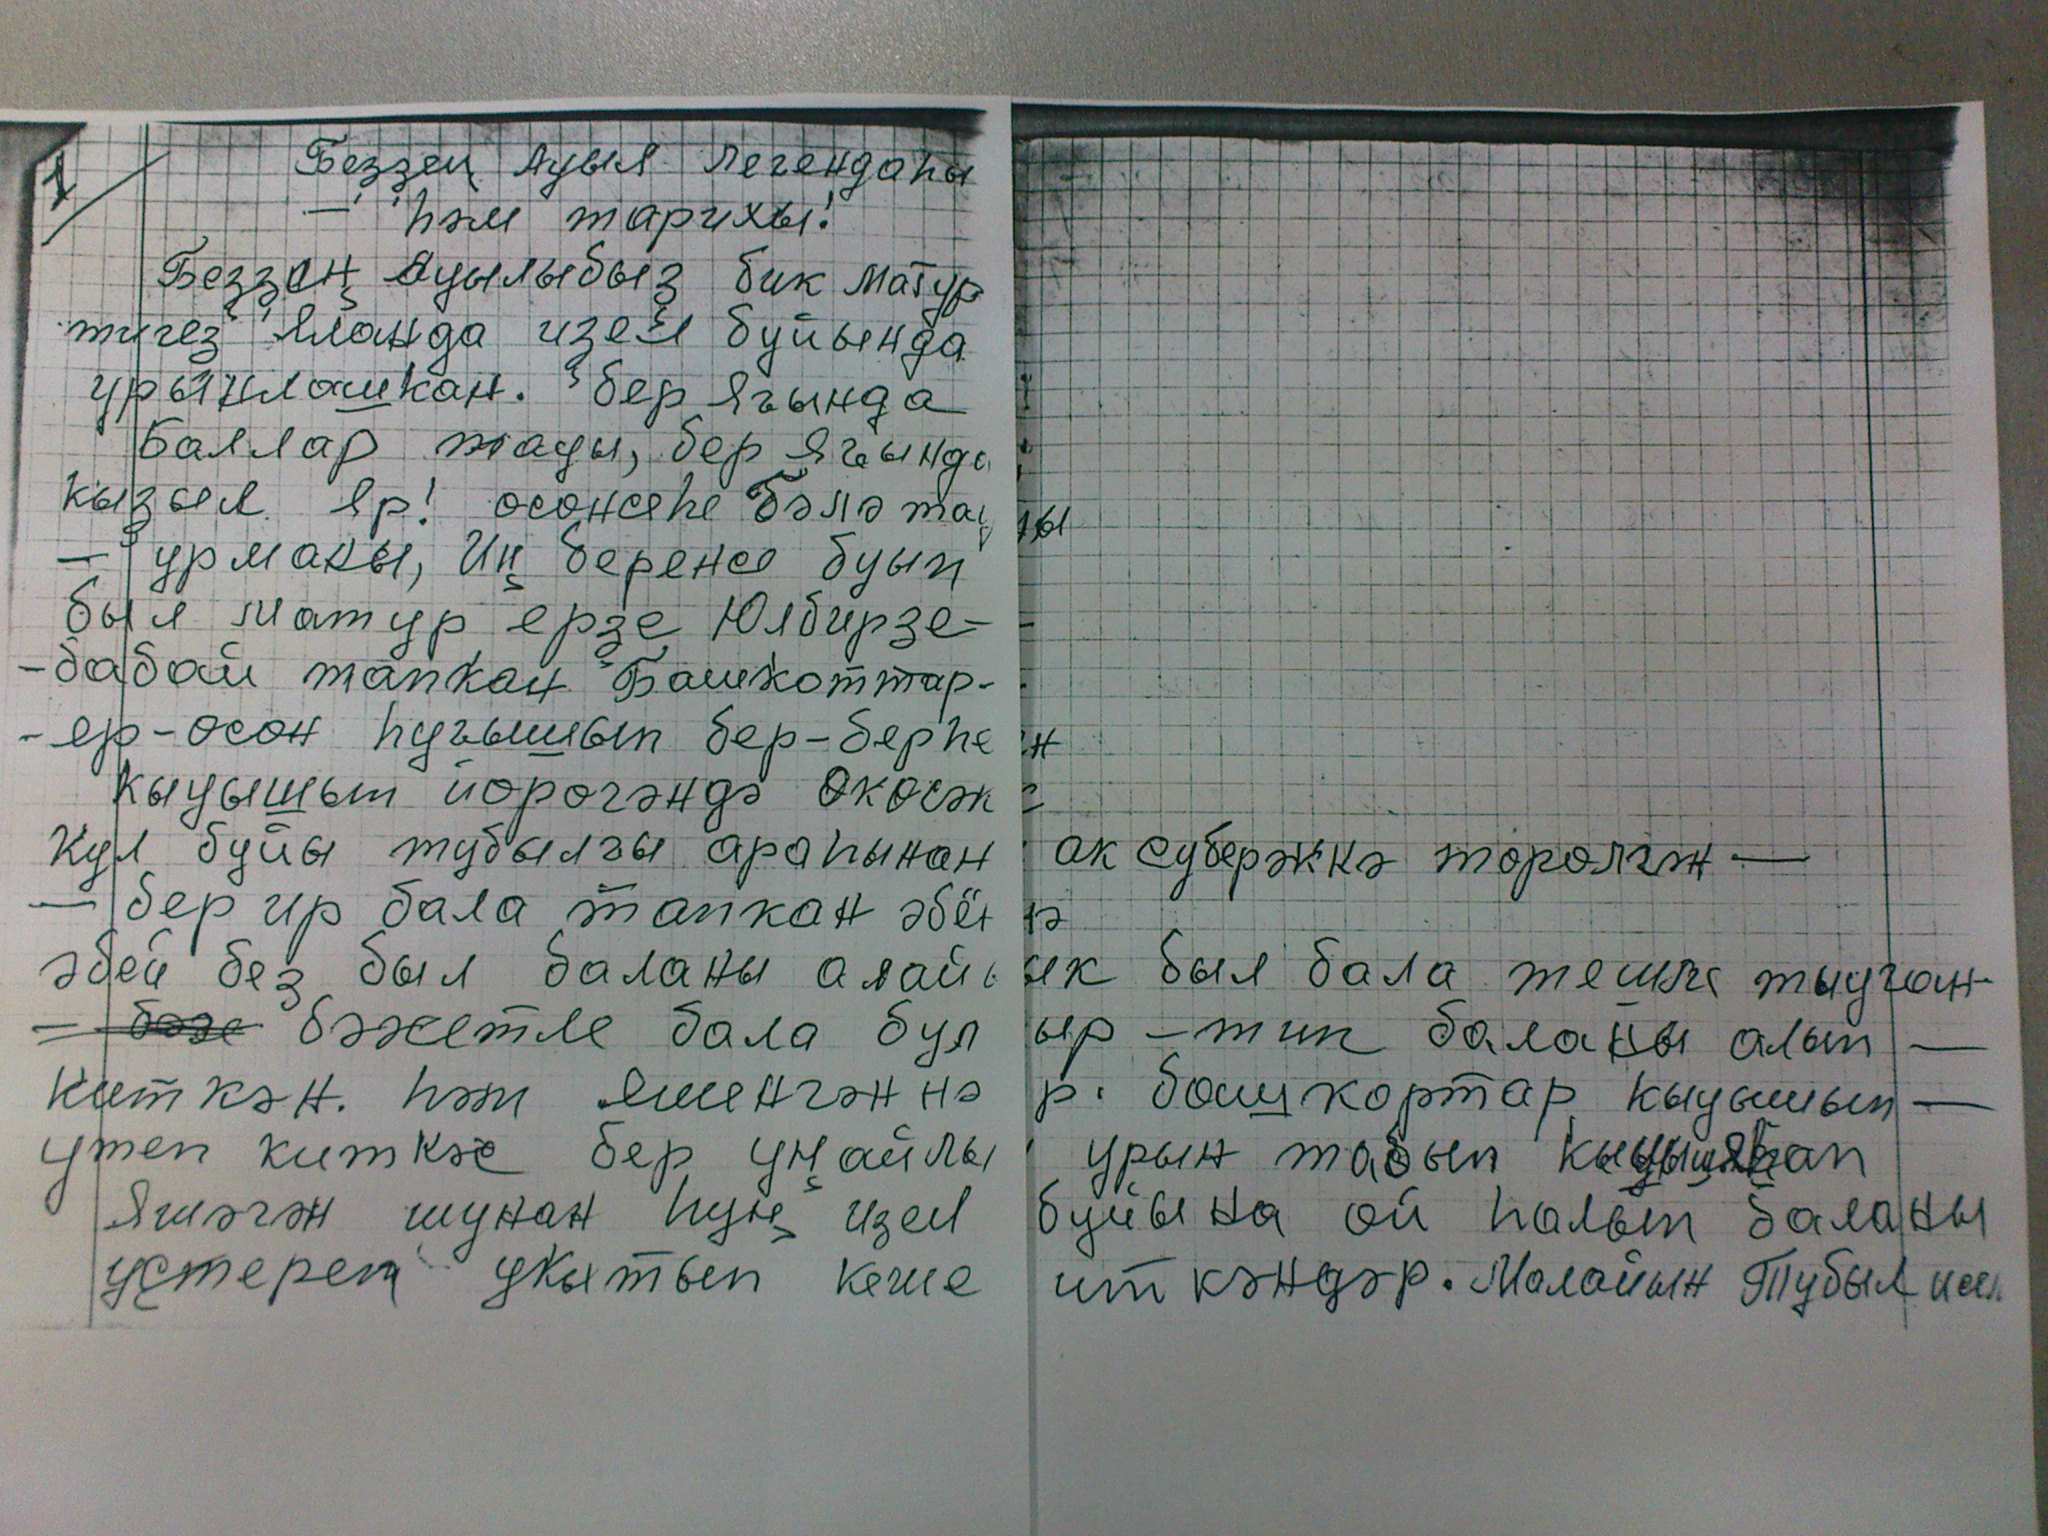 1
Беҙҙең ауыл легендаһы
— һәм тарихы!
Беҙҙең ауылыбыҙ бик матур
тигеҙ яланда изел буйында
урынлашкан. бер ягында
Баллар тауы, бер ягында
кыҙыл яр! осонсөһе Бәлә тауы
— урманы, Иң беренсе буып
был матур ерҙе Юлбирҙе-
-бабай тапкан Башкоттар-
-ер-осон һугышып бер-берһен
кыуышып йорогәндә
Кул буйы тубылгы араһынан ак субермәккә торолгән —
— бер ир бала тапкан әбёнә
әбей беҙ был баланы алайык был бала тешле тыуган-
— бәхетле бала булыр — тип баланы алып —
киткән. һәм йәшенгәннәр. башкортар кыуышып —
утеп киткәс бер уңайлы урын табып
Яшәгән шунан һуң изел буйына ой һалып баланы
уҫтереп укытып кеше иткәндәр. Малайын Тубыл исем